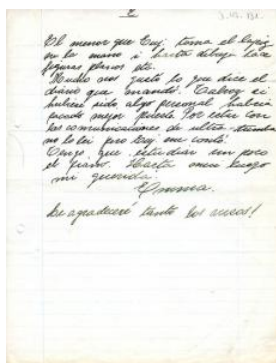 2
El menor que Euj. toma el lapiz
en la mano i hasta dibuja hace
figuras planos etc.
Mucho nos gustó lo que dice el
diário que mandó. Talvez si
hubiera sido algo personal habria
pasado mejor puesto. Por estar con
las comunicaciones de ultra-tumba
no lo lei pero Euj. me contó.
Tengo que estudiar un poco
el piano. Hasta luego
mi querida.
Emma.
Le agradeceré tanto los avisos!